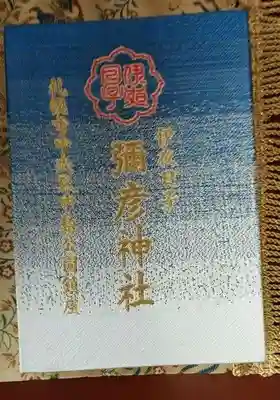 伊夜日子
彌彦神社
札幌市中央区中島公園鎮座